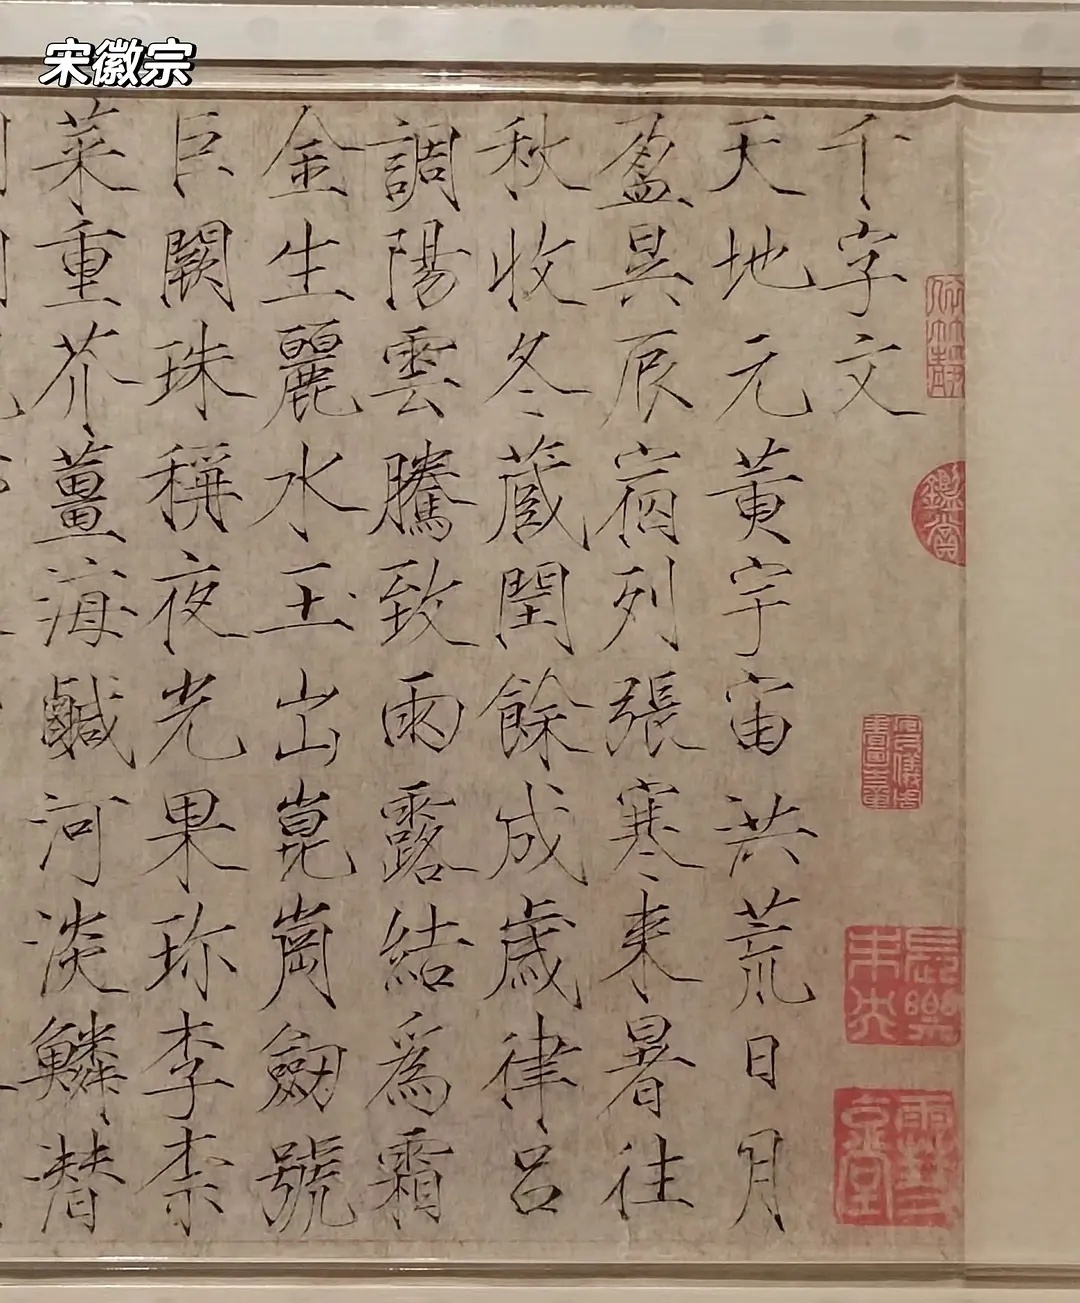 宋徽宗
千字文
天地元黃宇宙洪荒日月
盈昃辰宿列張寒來暑往
秋收冬藏閏餘成歲律呂
調陽雲騰致雨露結爲霜
金生麗水玉出崑崗劒號
巨闕珠稱夜光果珎李柰
菜重芥薑海鹹河淡鱗潜
鑑賞
安儀周書畫之章